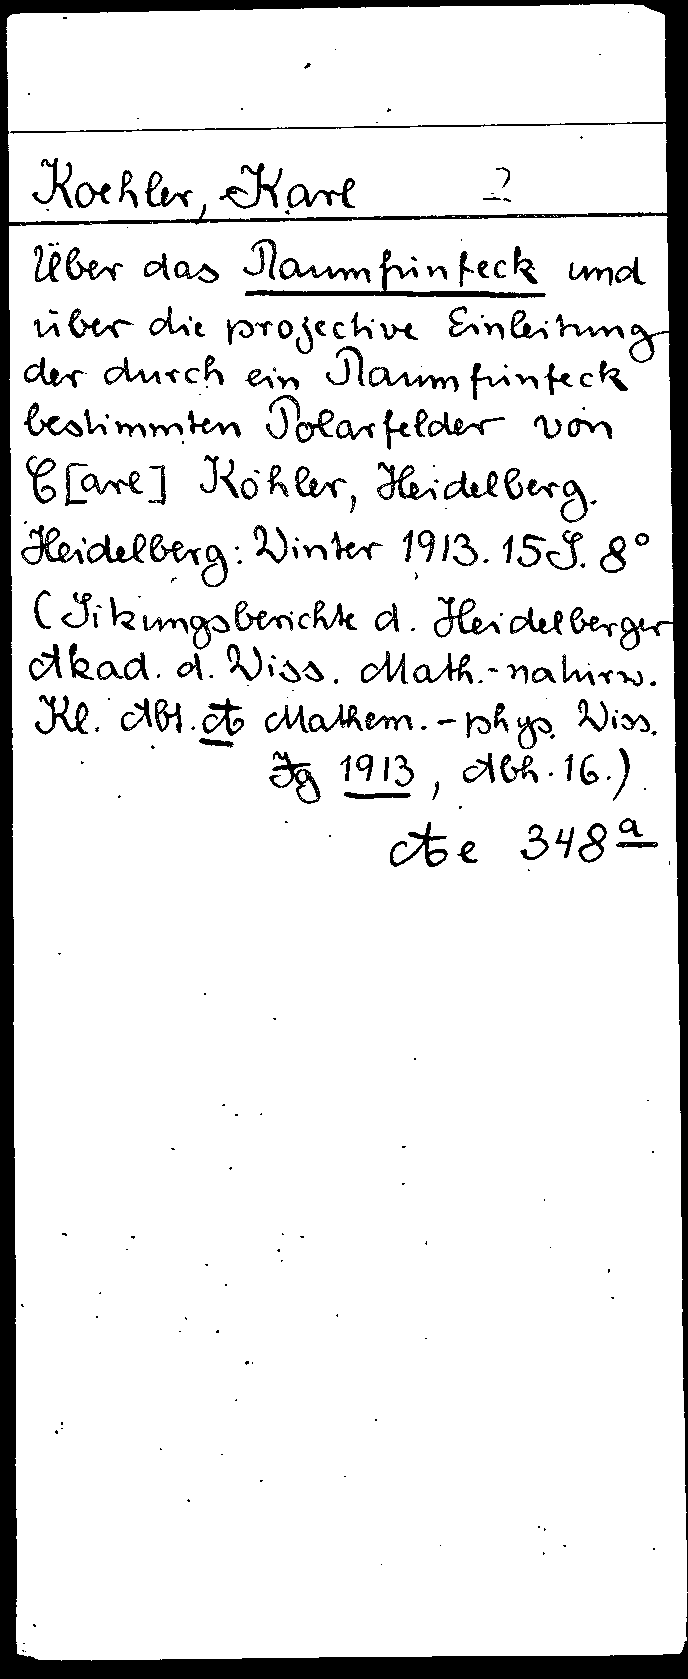 Koehler, Karl 2
Über das Raumfünfeck und
über die projective Einleitung
der durch ein Raumfünfeck
bestimmten Polarfelder von
C[arl] Köhler, Heidelberg.
Heidelberg: Winter 1913. 15 S. 8°
(Sitzungsberichte d. Heidelberger
Akad. d. Wiss. Math.-naturw.
Kl. Abt. A Mathem.-phys. Wiss.
Jg 1913, Abh. 16.)
A e 348 a